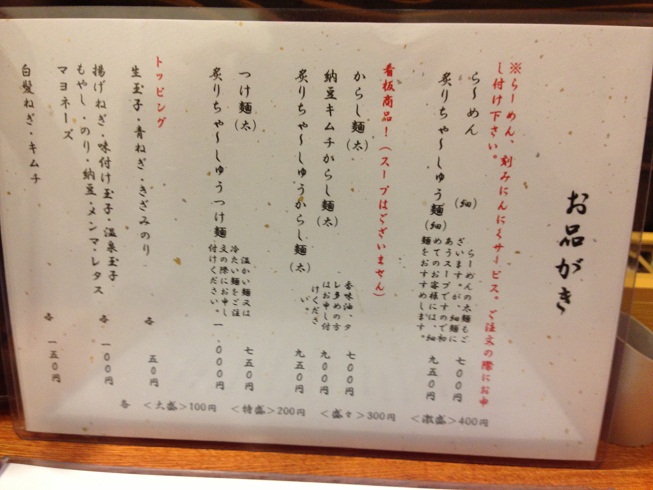 お品がき
※らーめん、刻みにんにくサービス。ご注文の際にお申
し付け下さい。
ら〜めん (細) 七００円
炙りちゃ〜しゅう麺(細) 九五０円
らーめんの太麺もご
ざいます。が、細麺に
あうスープですので初
めてのお客様には、細
麺をおすすめします。
看板商品！(スープはございません)
からし麺(太) 七００円
納豆キムチからし麺(太) 九００円
炙りちゃ〜しゅうからし麺(太) 九五０円
香味油、タ
レ多めの方
はお申し付
けくださ
い。
つけ麺(太) 七五０円
炙りちゃ〜しゅうつけ麺 一、０００円
温かい麺又は
冷たい麺をご注
文の際にお申し
付けください。
トッピング
生玉子・青ねぎ・きざみのり 各 五０円
揚げねぎ・味付け玉子・温泉玉子
もやし・のり・納豆・メンマ・レタス 各 一００円
マヨネーズ
白髪ねぎ・キムチ 各 一五０円
各 <大盛>100円 <特盛>200円 <盛々>300円 <激盛>400円